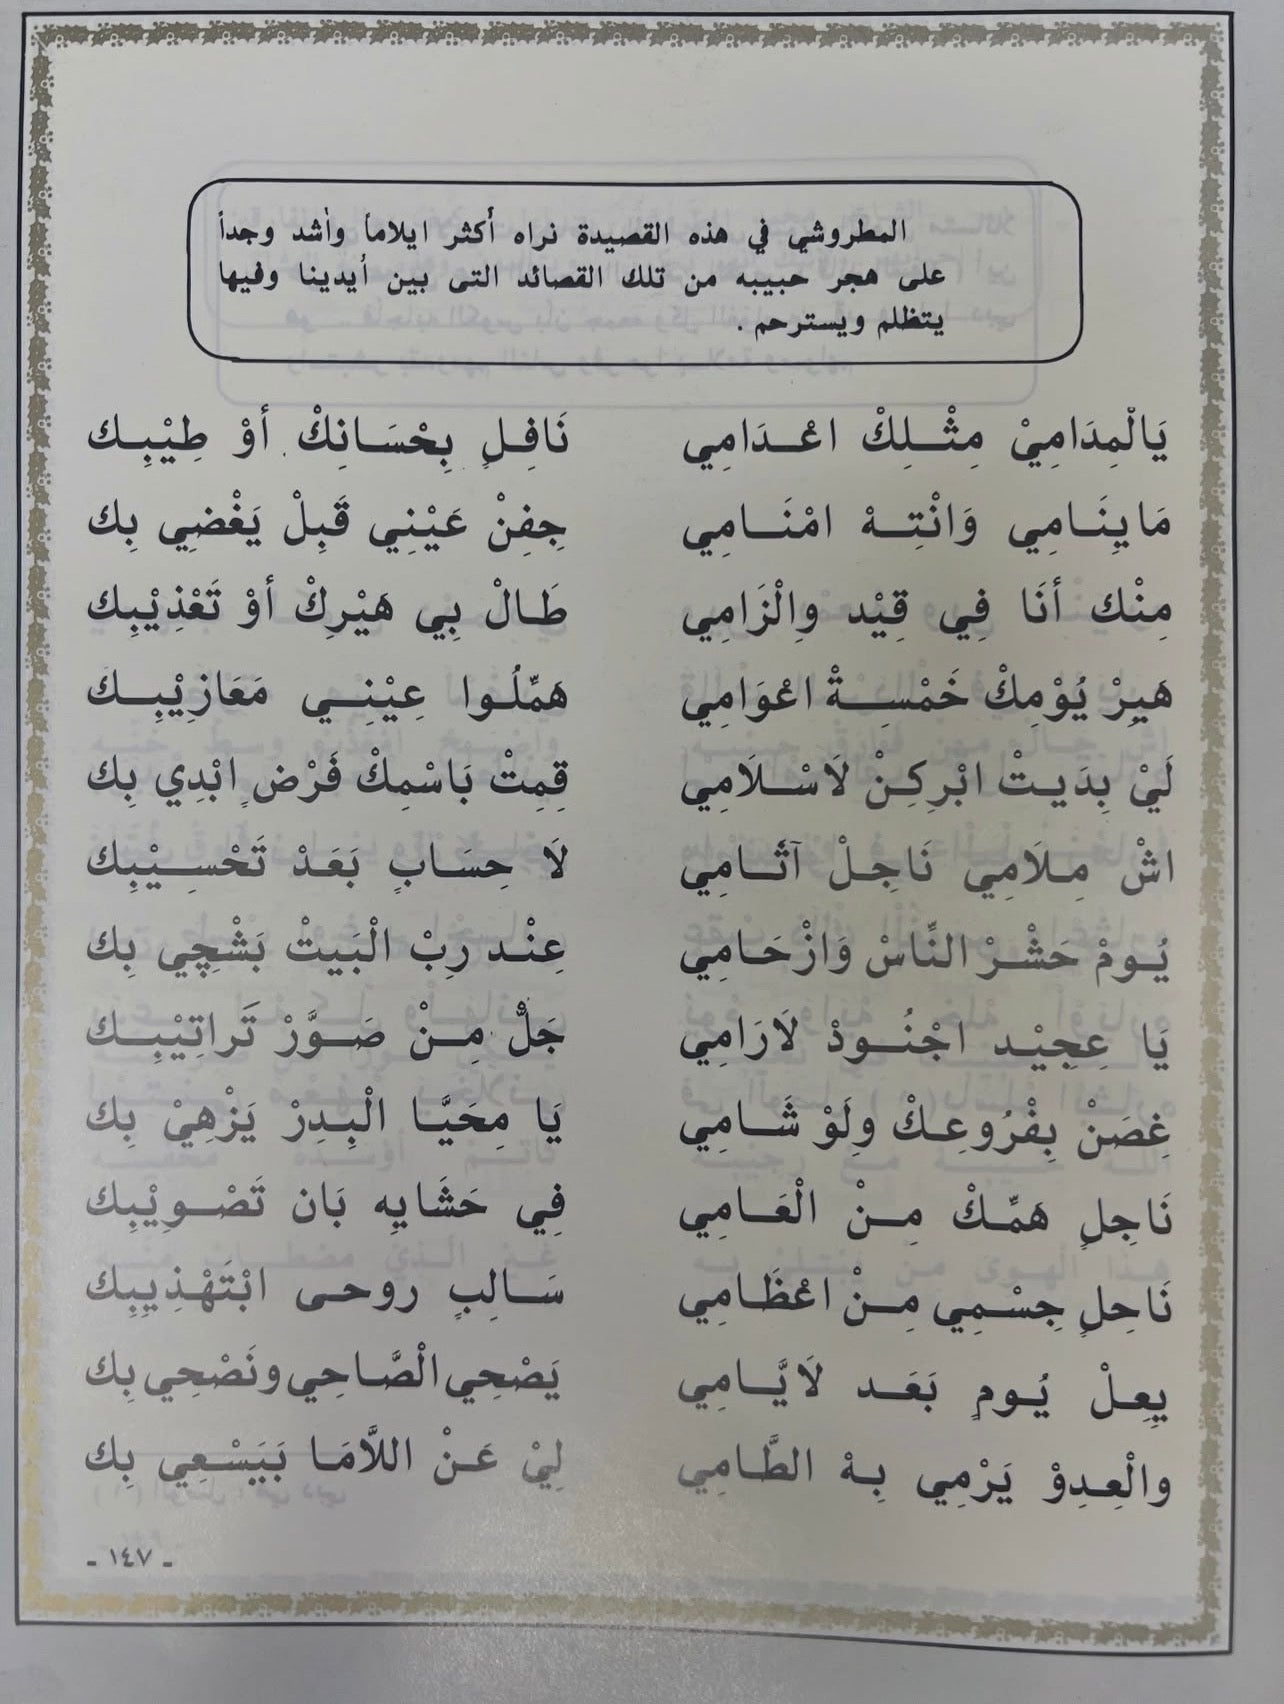 المطروشي في هذه القصيدة نراه أكثر ايلاماً وأشد وجداً
على هجر حبيبه من تلك القصائد التى بين أيدينا وفيها
يتظلم ويسترحم .
يَالْمِدَامِيْ مِثْلِكْ اعْدَامِي نَافِلٍ بِحْسَانِكْ أوْ طِيْبِك
مَايِنَامِي وَانْتِهْ امْنَامِي جِفِنْ عَيْنِي قَبِلْ يَغْضِي بِك
مِنْك أنَا فِي قِيْد والْزَامِي طَالْ بِي هَيْرِكْ أوْ تَعْذِيْبِك
هَيِرْ يُوْمِكْ خَمْسِةْ اعْوَامِي هَمِّلُوا عِيْنِي مَعَازِيْبِك
لَيْ بِدَيتْ ابْرِكِنْ لَاسْلَامِي قِمِتْ بَاسْمِكْ فَرْضٍ ابْدِي بِك
اشْ مِلَامِي نَاجِلْ آثَامِي لَا حِسَابٍ بَعَدْ تَحْسِيْبِك
يُومْ حَشْرْ النِّاسْ وَازْحَامِي عِنْد رِبْ الْبَيتْ بَشْچِي بِك
يَا عِجِيْد اجْنُودْ لَارَامِي جَلّْ مِنْ صَوَّرْ تَراتِيْبِك
غِصَنْ بِفْرُوعِكْ ولَوْ شَامِي يَا مِحَيَّا الْبِدِرْ يَزْهِيْ بِك
نَاجِلٍ هَمِّكْ مِنْ الْعَامِي فِي حَشَايِه بَان تَصْوِيْبِك
نَاحِلٍ جِسْمِي مِنْ اعْظَامِي سَالِبٍ روحى ابْتَهْذِيِبِك
يِعِلْ يُومٍ بَعَد لَايَّامِي يَصْحِي الْصَّاحِي ونَصْحِي بِك
والْعِدِوْ يَرْمِي بِهْ الطَّامِي لِيْ عَنْ اللَّامَا بَيَسْعِي بِك
- ١٤٧ -